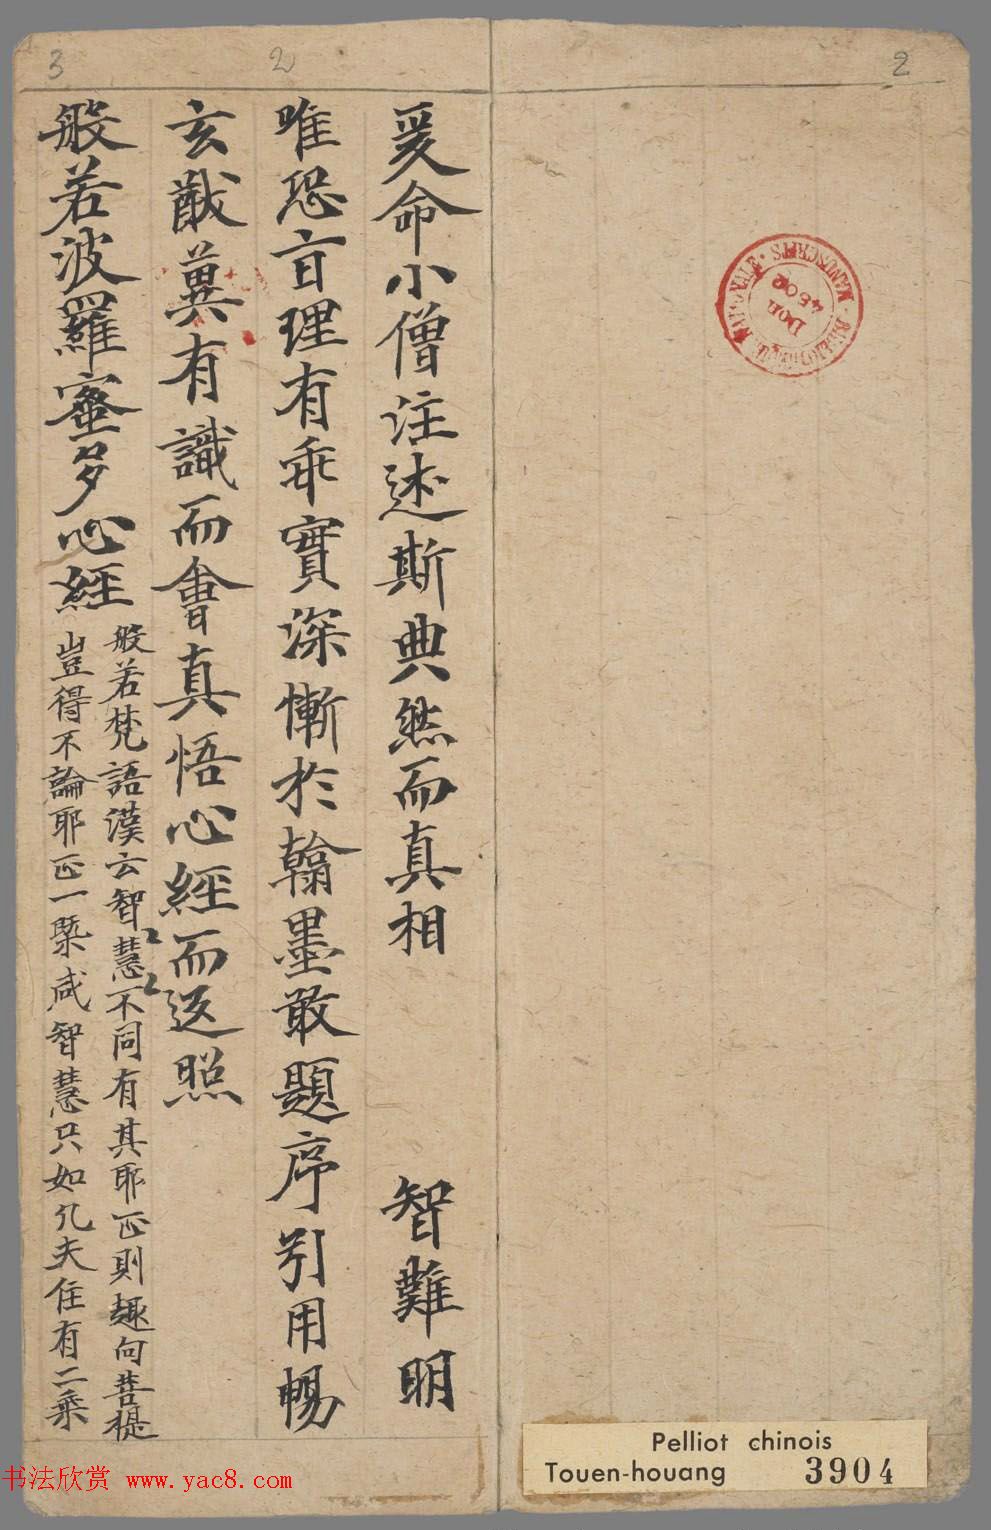 爰命小僧注述斯典然而真相　智難明
唯恐盲理有乖實深慚於翰墨敢題序引用暢
玄猷冀有識而會真悟心經而返照
般若波羅蜜多心經
般若梵語漢云智慧〻不同有其耶正則趣向菩提
豈得不論耶正一槩咸智慧只如凡夫住有二乘
3
2
2
BIBLIOTHÈQUE NATIONALE · MANUSCRITS ·
Don
4502
Pelliot chinois
Touen-houang 3904
书法欣赏 www.yac8.com